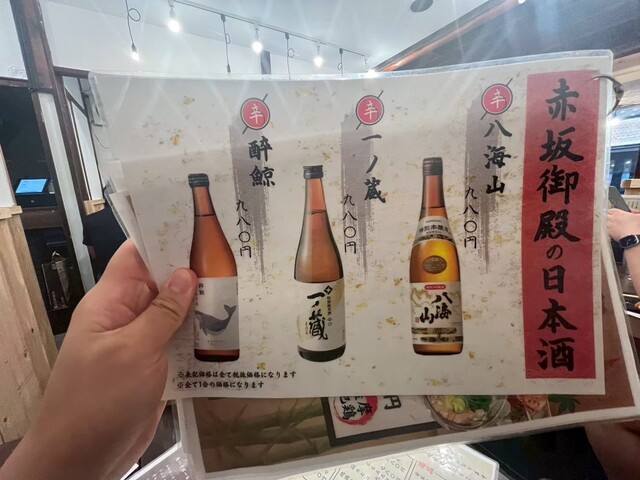 赤坂御殿の日本酒
辛
八海山
九八〇円
辛
一ノ蔵
九八〇円
辛
酔鯨
九八〇円
八海山
一ノ蔵
※表記価格は全て税抜価格になります
※全て1合の価格になります
円